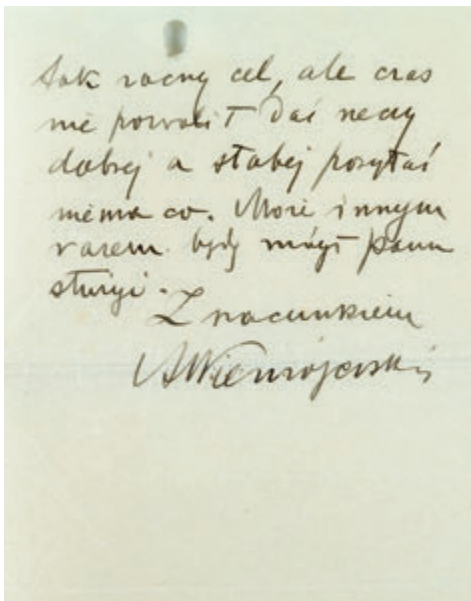 tak zacny cel, ale czas
nie pozwolił dać rzeczy
dobrej a słabej posyłać
niema co. Może innym
razem będę mógł panu
służyć.
Z szacunkiem